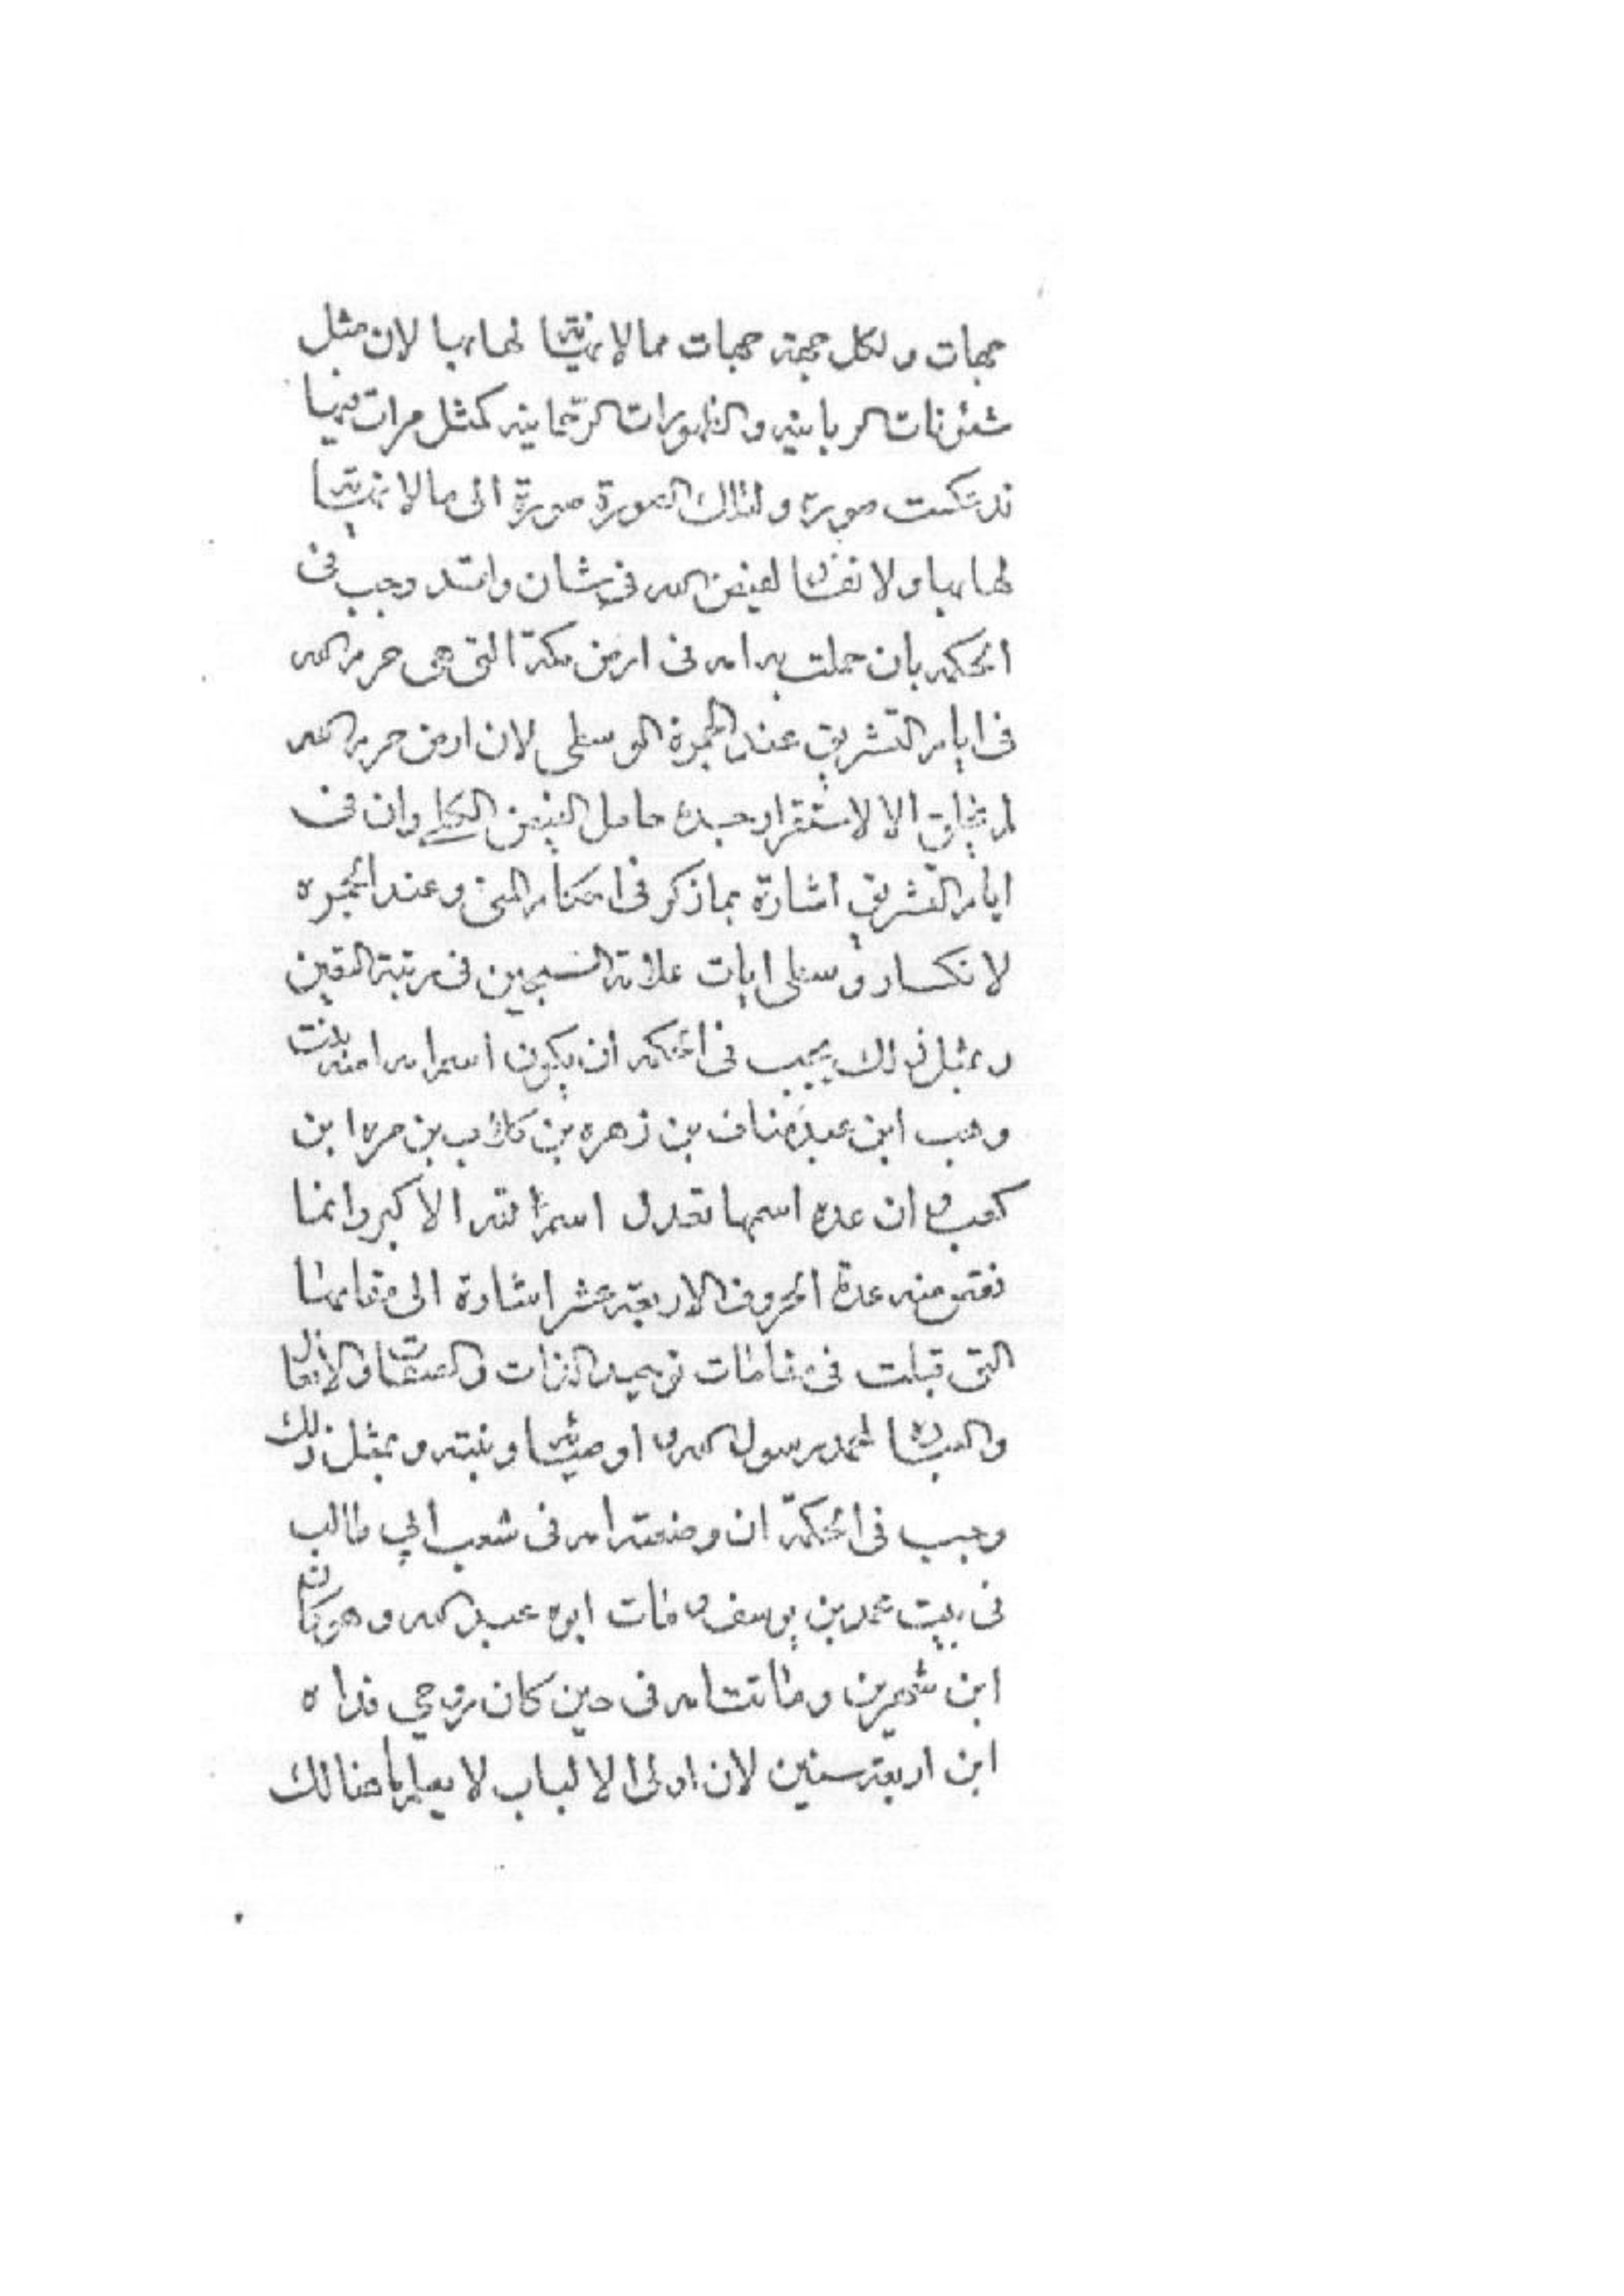 جهات و لكل جهة جهات مما لا نهاية لها بها لان مثل
شئونات الربانيه و الظهورات الرحمانيه كمثل مرات فيها
قد عكست صورة و لتلك الصورة صورة الى ما لا نهاية
لها بها و لا نفاد لفيض الله فى شان و لقد وجب فى
الحكمه بان حملت به امه فى ارض مكة التى هى حرم الله
فى ايام التشريق عند الجمرة الوسطى لان ارض حرم الله
لم يخلق الا لاستقرار جسده حامل الفيض الكلى و ان فى
ايام التشريق اشارة بما ذكر فى احكام المنى و عند الجمره
لانكسار وسطى ايات علامة السبحين فى رتبة اليقين
و بمثل ذلك يجب فى الحكمه ان يكون اسم امه امنه بنت
وهب ابن عبد مناف بن زهره بن كلاب بن مره ابن
كعب و ان عده اسمها تعدل اسم الله الاكبر و انما
نقص منه عدة الحروف الاربعة عشر اشارة الى مقاماتها
التى قبلت فى مقامات توحيد الذات و الصفات و الافعال
و العبادة لمحمد رسول الله و اوصيائه و بنته و بمثل ذلك
وجب فى الحكمة ان وضعته امه فى شعب ابي طالب
فى بيت محمد بن يوسف و مات ابوه عبد الله و هو كان
ابن شهرين و ماتت امه فى حين كان روحي فداه
ابن اربعة سنين لان اولى الالباب لا يعلم ما هنالك